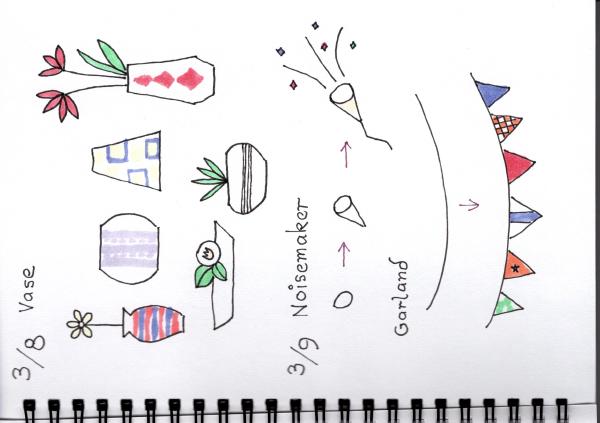 3/8 Vase
3/9 Noisemaker
Garland